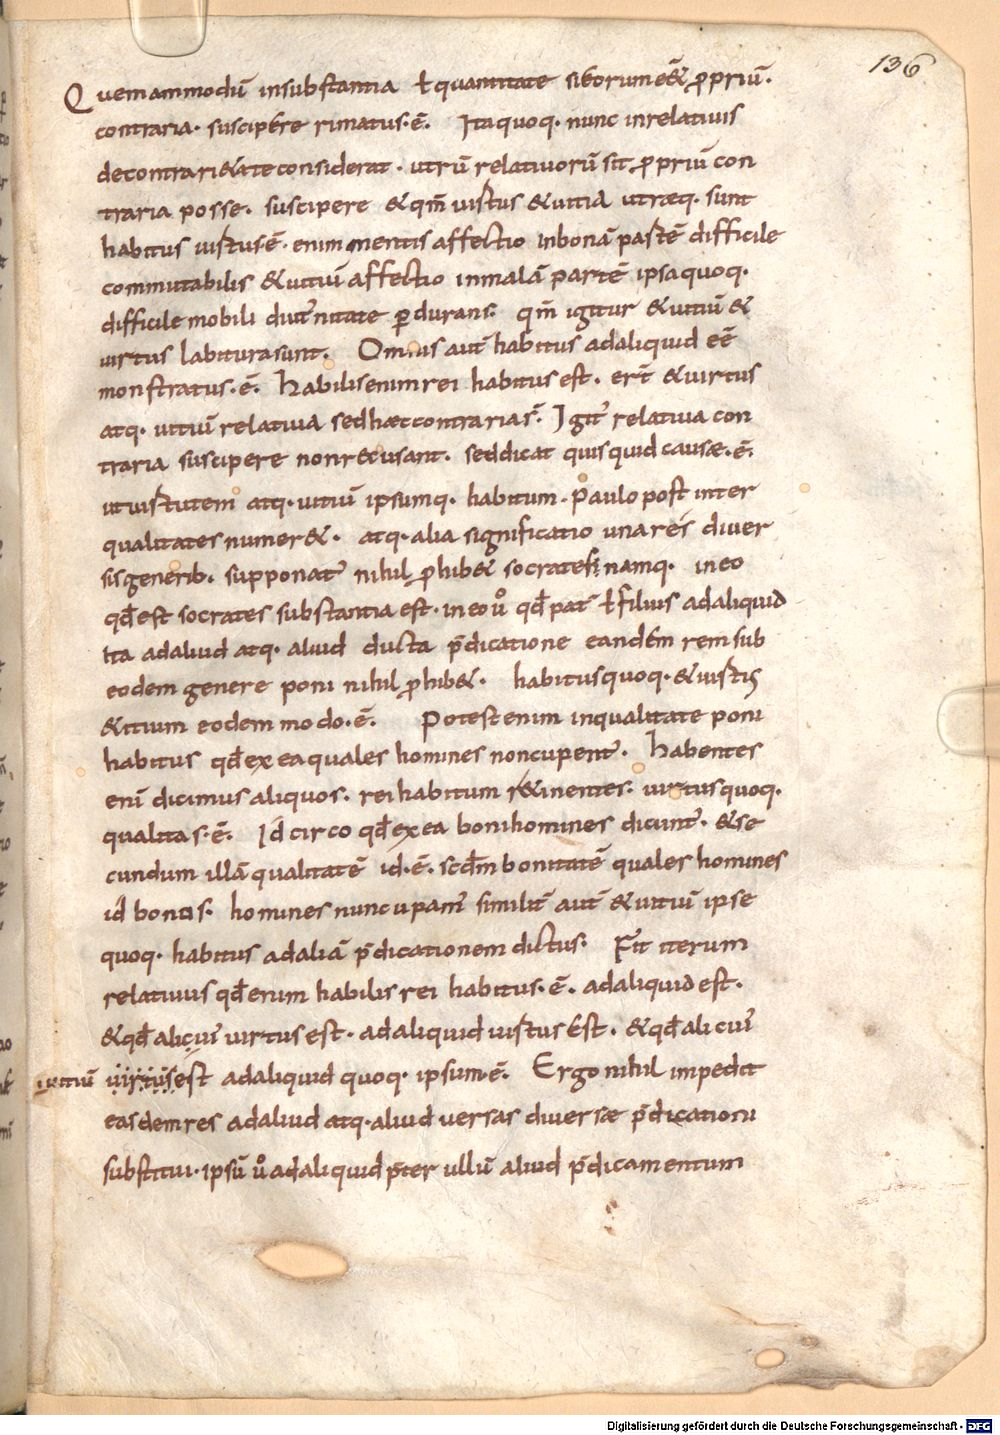 136
Quemammodū insubstantia ƚ quantitate si eorum ē& ꝓpriū.
contraria. suscipere rimatus. ē. Ita quoq. nunc inrelativis
decontrari&ate considerat. utrū relativorū sit ꝓpriū con
traria posse. suscipere & qm̄ uistus & uitia utræq. sunt
habitus uistus ē. enim mentis affectio inbonā pastē difficile
commutabilis & uitiū affectio inmalā partē ipsa quoq.
difficile mobili diut̄nitate ꝑdurans. qm̄ igitur & uitiū &
uirtus labitura sunt. Omnis aut̄ habitus adaliquid eē
monstratus. ē. habilis enim rei habitus est. er̄t & uirtus
atq. uitiū relativa sed hæc contraria s̄. Igit̄ relativa con
traria suscipere non recusant. sed dicat quis quid causæ. ē.
ut uistutem atq. uitiū ipsumq. habitum. Paulo post inter
qualitates numer&. atq. alia significatio una res diver
sis generib. supponat̄ nihil ꝓhib& socrates namq. in eo
qd̄ est socrates substantia est. in eo uº qd̄ pat̄ ƚ filius adaliquid
Ita adaliud atq. aliud ducta p̄dicatione eandem rem sub
eodem genere poni nihil ꝓhib&. habitus quoq. & uistus
& itium eodem modo. ē. Potest enim inqualitate poni
habitus qd̄ ex ea quales homines noncupent̄. habentes
enī dicimus aliquos. rei habitum r&inentes. uirtus quoq.
qualitas. ē. Idcirco qd̄ ex ea boni homines dicunt̄. & se
cundum illā qualitatē id. ē. scdm̄ bonitatē quales homines
id bonos. homines nuncupam̄ similit̄ aut̄ & uitiū ipse
quoq. habitus adaliā p̄dicationem dictus. Fit iterum
relativus qd̄ enim habilis rei habitus. ē. adaliquid est.
& qd̄ alicui uirtus est. adaliquid uistus est. & qd̄ alicui
uitiū uirtus est adaliquid quoq. ipsum. ē. Ergo nihil impedit
easdem res adaliud atq. aliud versas diversæ p̄dicationi
substitui. ipsū uº adaliquid p̄ter ullū aliud p̄dicamentum
Digitalisierung gefördert durch die Deutsche Forschungsgemeinschaft - DFG